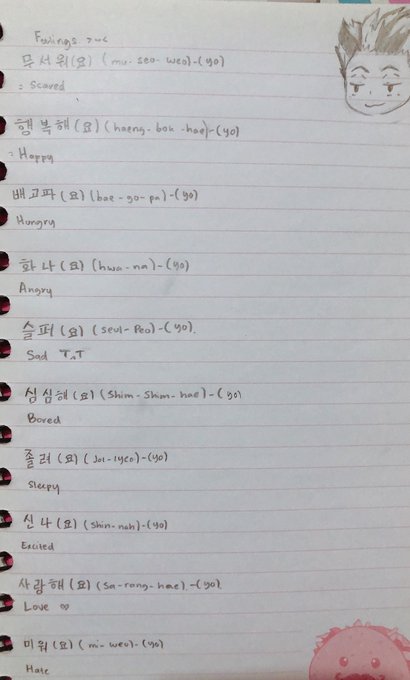 Feelings >~<
무서워(요) (mu-seo-weo)-(yo)
: Scared
행복해(요) (haeng-bok-hae)-(yo)
: Happy
배고파(요) (bae-go-pa)-(yo)
Hungry
화나(요) (hwa-na)-(yo)
Angry
슬퍼(요) (seul-Peo)-(yo).
Sad T^T
심심해(요) (Shim-Shim-hae)-(yo)
Bored
졸려(요) (Jol-lyeo)-(yo)
Sleepy
신나(요) (Shin-nah)-(yo)
Excited
사랑해(요) (Sa-rang-hae)-(yo).
Love ∞
미워(요) (mi-weo)-(yo)
Hate